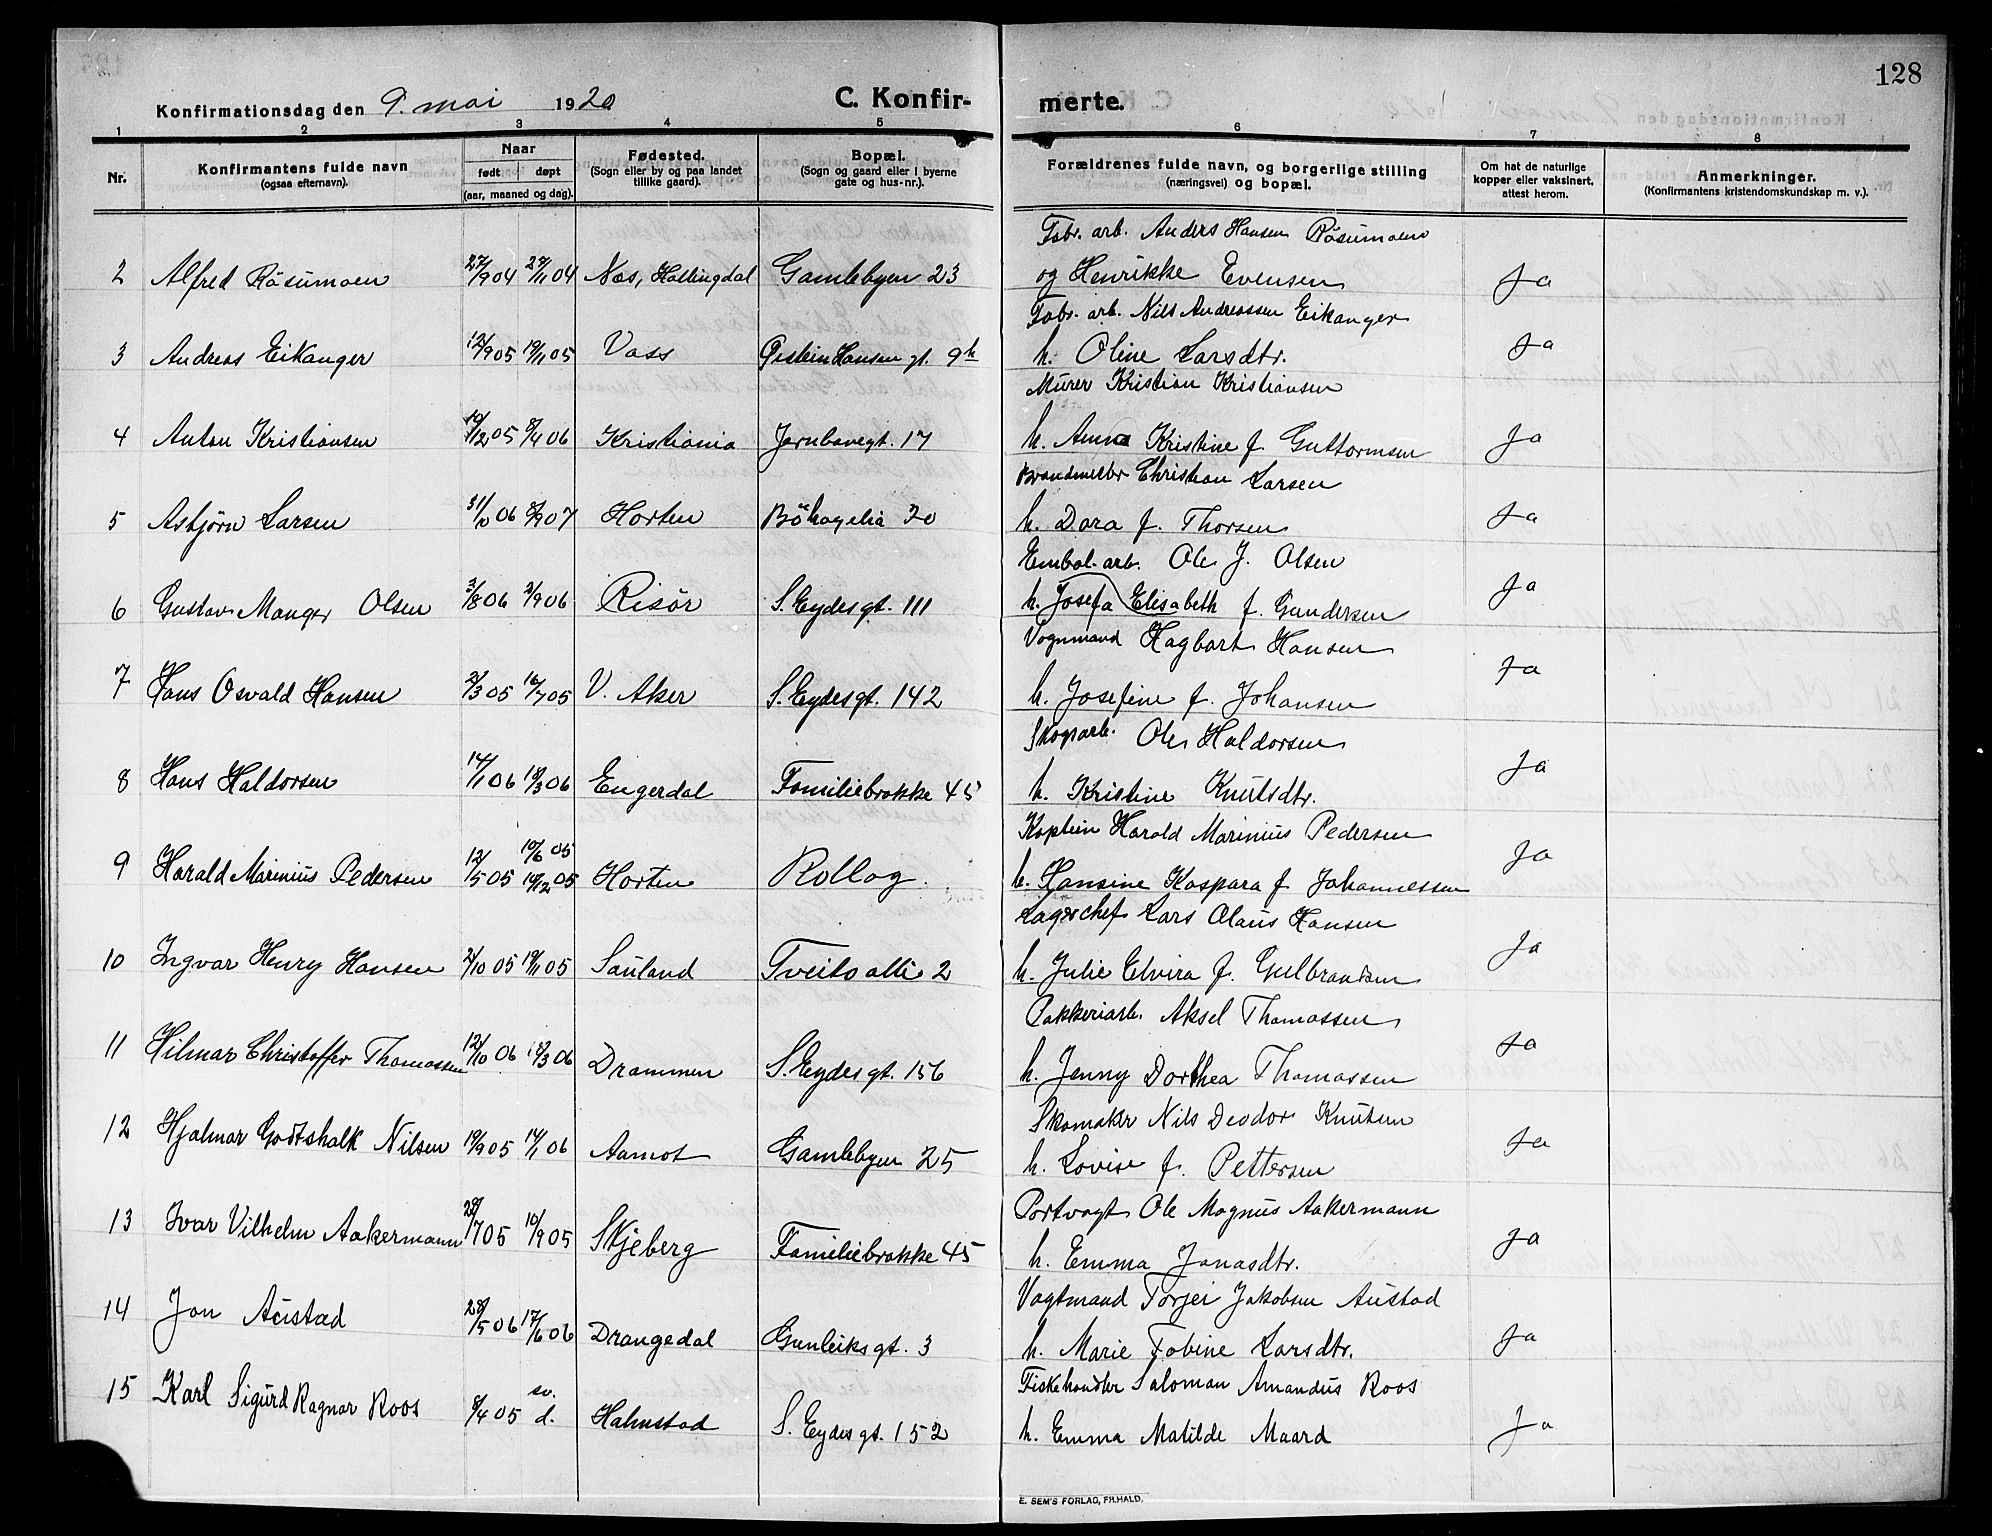 128
Konfirmationsdag den 9. mai 1920
C. Konfir-
merte.
1 2 3 4 5 6 7 8
Nr.
Konfirmantens fulde navn
(ogsaa efternavn).
Naar
født døpt
(aar, maaned og dag).
Fødested.
(Sogn eller by og paa landet
tillike gaard).
Bopæl.
(Sogn og gaard eller i byerne
gate og hus-nr.).
Forældrenes fulde navn, og borgerlige stilling
(næringsvei) og bopæl.
Om hat de naturlige
kopper eller vaksinert,
attest herom.
Anmerkninger.
(Konfirmantens kristendomskundskap m. v.).
Fabr. arb. Anders Hansen Røsumoen
2 Alfred Røsumoen 27/9 04 27/11 04 Nes, Hallingdal Gamlebyen 23 og Henrikke Evensen Ja
Fabr. arb. Nils Andreassen Eikanger
3 Andreas Eikanger 12/9 05 19/11 05 Voss Øistein Hansen gt. 9h h. Oline Larsdtr. Ja
Murer Kristian Kristiansen
4 Anton Kristiansen 10/12 05 8/4 06 Kristiania Jernbanegt. 17 h. Anna Kristine f. Guttormsen Ja
Brandmester Christian Larsen
5 Asbjørn Larsen 31/10 06 8/9 07 Horten Bøhagelia 30 h. Dora f. Thorsen Ja
Embal. arb. Ole J. Olsen
6 Gustav Manger Olsen 3/8 06 2/9 06 Risør S. Eydesgt. 111 h. Josefa Elisabeth f. Gundersen Ja
Vognmand Hagbart Hansen
7 Hans Osvald Hansen 2/3 05 16/7 05 V. Aker S. Eydesgt. 142 h. Josefine f. Johansen Ja
Skogarb. Ole Haldorsen
8 Hans Haldorsen 14/1 06 18/3 06 Engerdal Familiebrakke 45 h. Kristine Knutsdtr. Ja
Kaptein Harald Marinius Pedersen
9 Harald Marinius Pedersen 12/5 05 10/6 05 19/12 05 Horten Rollag. h. Hansine Kaspara f. Johannessen Ja
Lagerchef Lars Olaus Hansen
10 Ingvar Henry Hansen 2/10 05 19/11 05 Sauland Tveito alle 2 h. Julie Elvira f. Gulbrandsen Ja
Pakkeriarb. Aksel Thomassen
11 Hilmar Christoffer Thomassen 12/10 06 18/3 06 Drammen S. Eydesgt. 156 h. Jenny Dorthea Thomassen Ja
Skomaker Nils Deodor Knutsen
12 Hjalmar Godtshalk Nilsen 19/9 05 14/1 06 Aamot Gamlebyen 25 h. Lovise f. Pettersen Ja
Portvagt Ole Magnus Aakermann
13 Ivar Vilhelm Aakermann 28/7 05 10/9 05 Skjeberg Familiebrakke 45 h. Emma Jonasdtr. Ja
Vagtmand Torjei Jakobsen Austad
14 Jon Austad 28/5 06 17/6 06 Drangedal Gunleiksgt. 3 h. Marie Tobine Larsdtr. Ja
Fiskehandler Saloman Amandus Roos
15 Karl Sigurd Ragnar Roos 8/4 05 sv. d. Halmstad S. Eydesgt. 152 h. Emma Matilde Maard Ja
E. SEM'S FORLAG, FR.HALD.